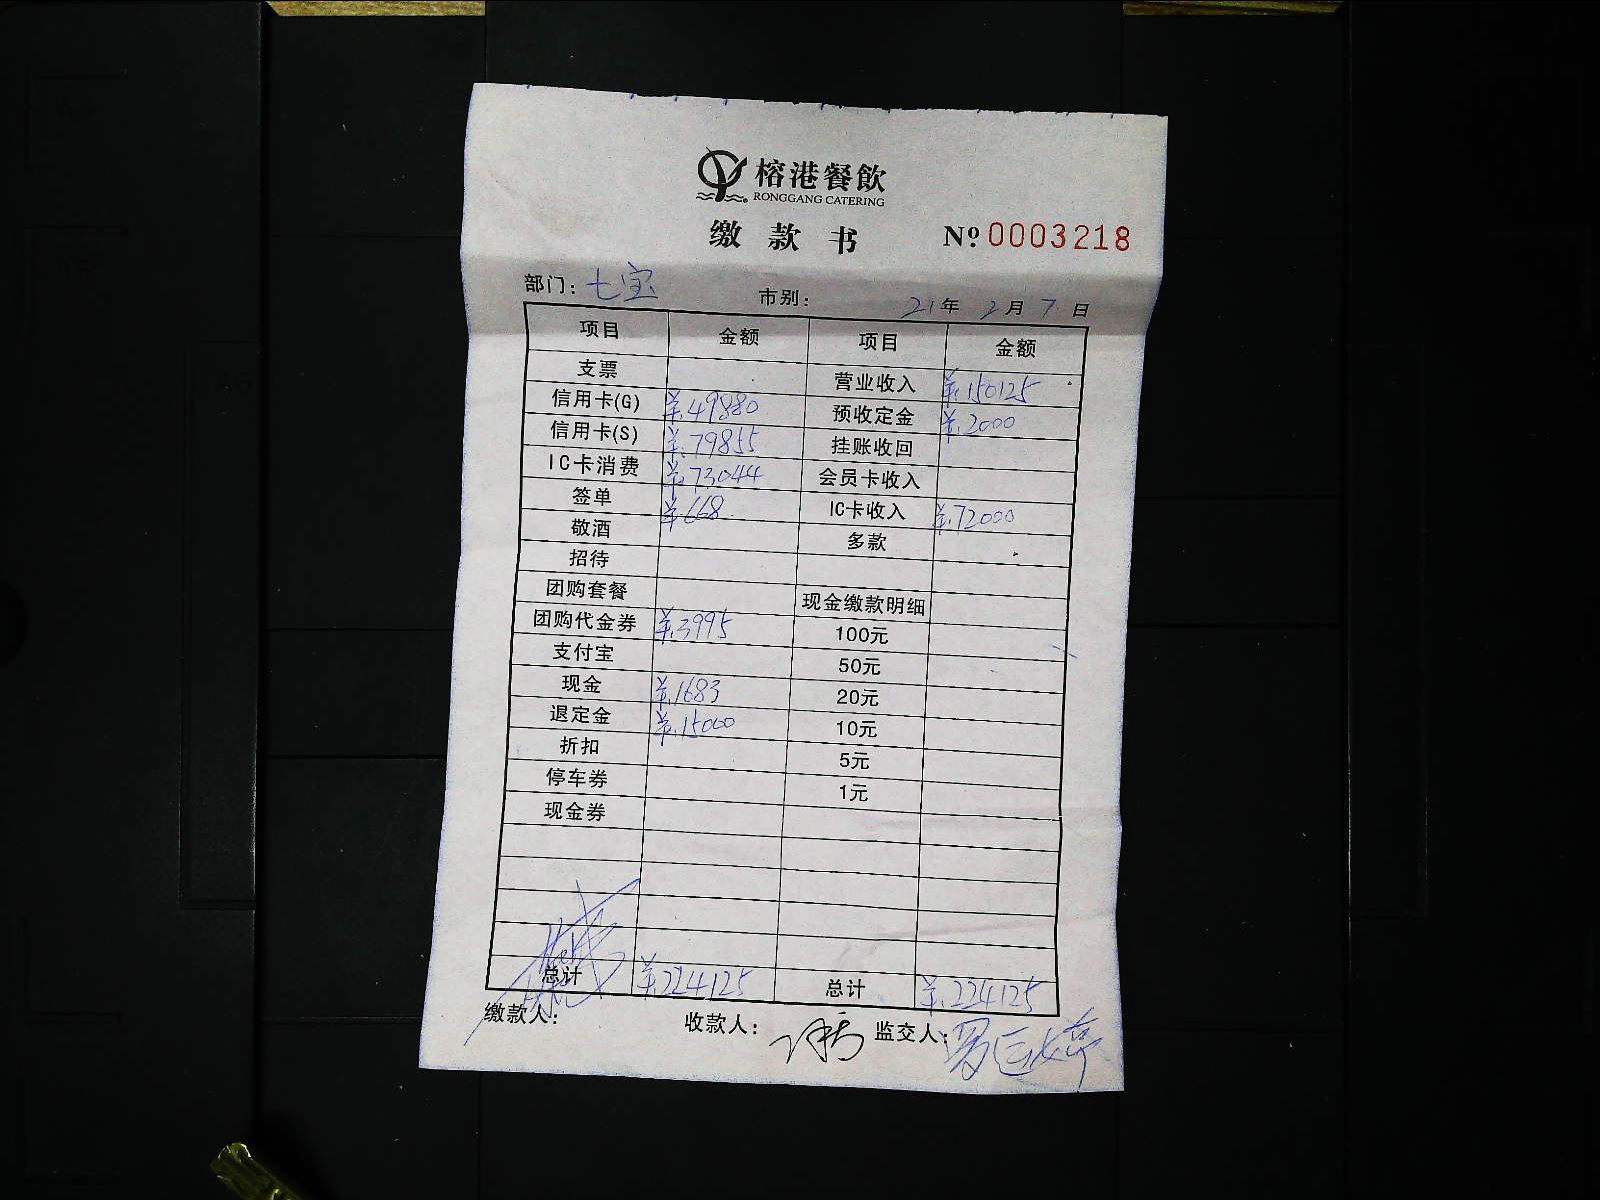 榕港餐飲
RONGGANG CATERING
缴款书 Nº 0003218
部门：七宝 市别： 21年 2月 7日
项目 金额 项目 金额
支票 营业收入 ¥.150125
信用卡(G) ¥.49880 预收定金 ¥.2000
信用卡(S) ¥.79855 挂账收回
IC卡消费 ¥.73044 会员卡收入
签单 ¥.668 IC卡收入 ¥.72000
敬酒 多款
招待
团购套餐 现金缴款明细
团购代金券 ¥.3995 100元
支付宝 50元
现金 ¥.1683 20元
退定金 ¥.15000 10元
折扣 5元
停车券 1元
现金券
总计 ¥.224125 总计 ¥.224125
缴款人： 收款人： 监交人：